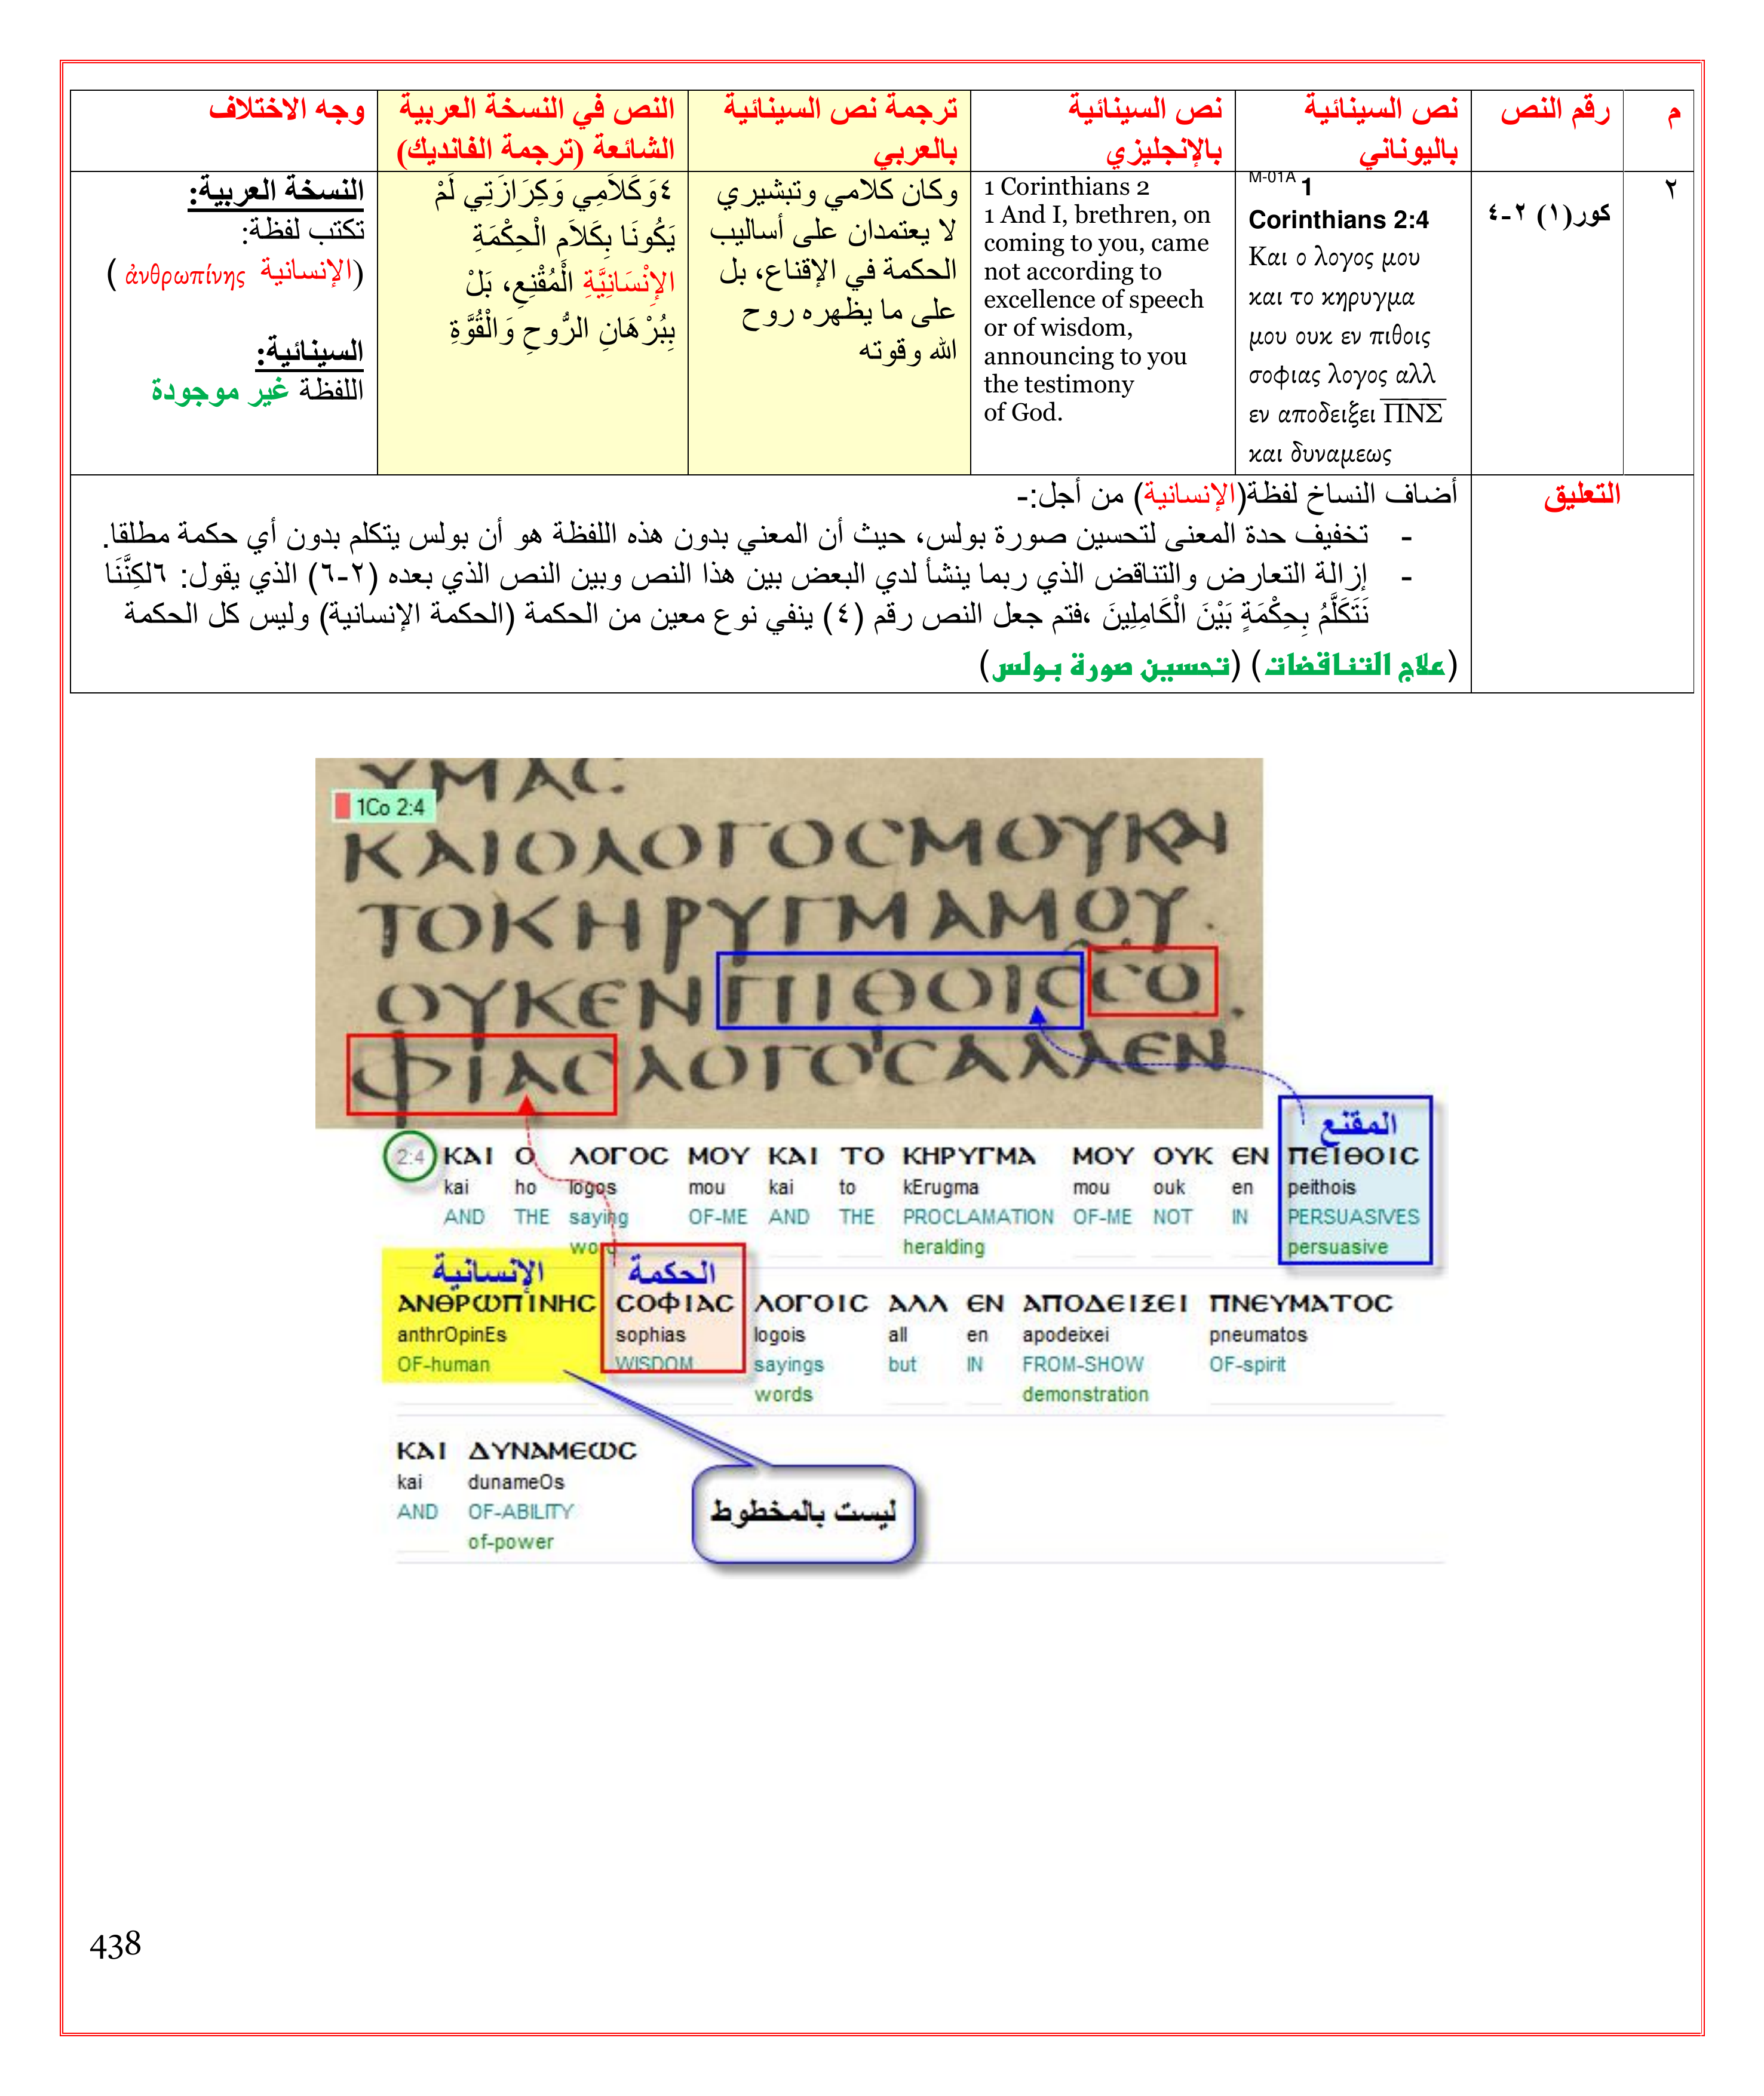 م
رقم النص
نص السينائية
باليوناني
نص السينائية
بالإنجليزي
ترجمة نص السينائية
بالعربي
النص في النسخة العربية
الشائعة (ترجمة الفانديك)
وجه الاختلاف
٢
كور(١) ٢-٤
M-01A 1
Corinthians 2:4
Και ο λογος μου
και το κηρυγμα
μου ουκ εν πιθοις
σοφιας λογος αλλ
εν αποδειξει ΠΝΣ
και δυναμεως
1 Corinthians 2
1 And I, brethren, on
coming to you, came
not according to
excellence of speech
or of wisdom,
announcing to you
the testimony
of God.
وكان كلامي وتبشيري
لا يعتمدان على أساليب
الحكمة في الإقناع، بل
على ما يظهره روح
الله وقوته
٤وَكَلاَمِي وَكِرَازَتِي لَمْ
يَكُونَا بِكَلاَمِ الْحِكْمَةِ
الإِنْسَانِيَّةِ الْمُقْنِعِ، بَلْ
بِبُرْهَانِ الرُّوحِ وَالْقُوَّةِ
النسخة العربية:
تكتب لفظة:
(الإنسانية ἀνθρωπίνης )
السينائية:
اللفظة غير موجودة
التعليق
أضاف النساخ لفظة(الإنسانية) من أجل:-
- تخفيف حدة المعنى لتحسين صورة بولس، حيث أن المعني بدون هذه اللفظة هو أن بولس يتكلم بدون أي حكمة مطلقا.
- إزالة التعارض والتناقض الذي ربما ينشأ لدي البعض بين هذا النص وبين النص الذي بعده (٢-٦) الذي يقول: ٦لكِنَّنَا
نَتَكَلَّمُ بِحِكْمَةٍ بَيْنَ الْكَامِلِينَ ،فتم جعل النص رقم (٤) ينفي نوع معين من الحكمة (الحكمة الإنسانية) وليس كل الحكمة
(علاج التناقضات) (تحسين صورة بولس)
ΥΜΑϹ
1Co 2:4
ΚΑΙΟΛΟΓΟϹΜΟΥΚΑΙ
ΤΟΚΗΡΥΓΜΑΜΟΥ
ΟΥΚΕΝΠΙΘΟΙϹϹΟ
ΦΙΑϹΛΟΓΟϹΑΛΛΕΝ
المقنع
2:4 ΚΑΙ Ο ΛΟΓΟϹ ΜΟΥ ΚΑΙ ΤΟ ΚΗΡΥΓΜΑ ΜΟΥ ΟΥΚ ΕΝ ΠΕΙΘΟΙϹ
kai ho logos mou kai to kErugma mou ouk en peithois
AND THE saying OF-ME AND THE PROCLAMATION OF-ME NOT IN PERSUASIVES
word heralding persuasive
الإنسانية الحكمة
ΑΝΘΡΩΠΙΝΗϹ ϹΟΦΙΑϹ ΛΟΓΟΙϹ ΑΛΛ ΕΝ ΑΠΟΔΕΙΞΕΙ ΠΝΕΥΜΑΤΟϹ
anthrOpinEs sophias logois all en apodeixei pneumatos
OF-human WISDOM sayings but IN FROM-SHOW OF-spirit
words demonstration
ΚΑΙ ΔΥΝΑΜΕΩϹ
kai dunameOs
AND OF-ABILITY
of-power
ليست بالمخطوط
438